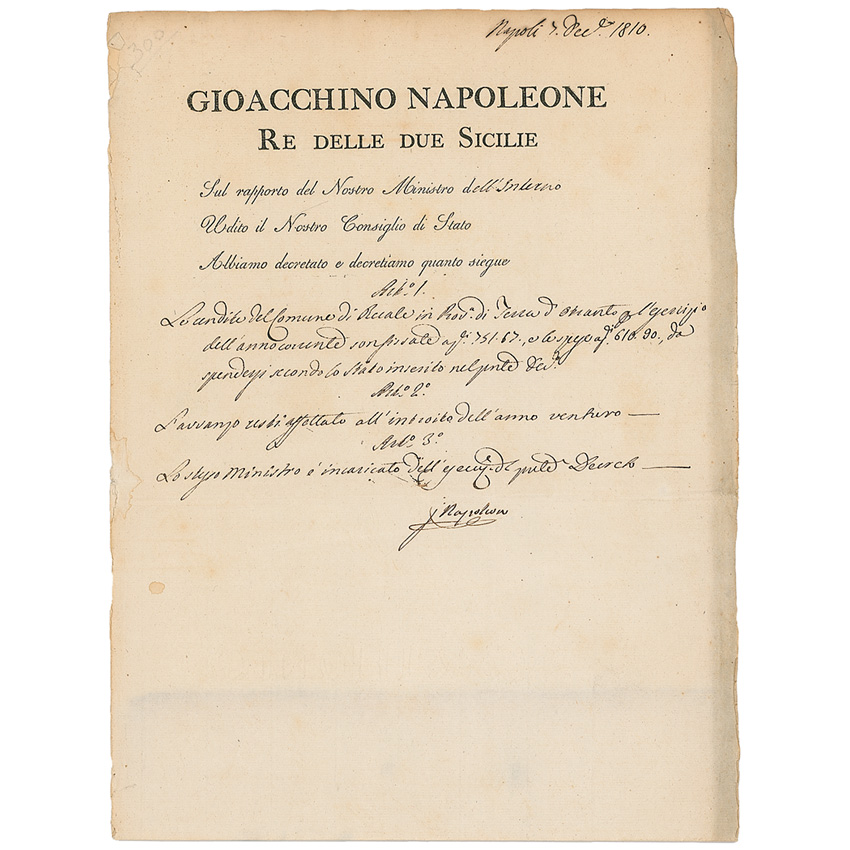 300
Napoli 7. Dec.e 1810.
GIOACCHINO NAPOLEONE
RE DELLE DUE SICILIE
Sul rapporto del Nostro Ministro dell'Interno
Udito il Nostro Consiglio di Stato
Abbiamo decretato e decretiamo quanto siegue
Art.o 1.
Le rendite del Comune di Racale in Prov.a di Terra d'Otranto p l'esercizio
dell'anno corrente son fissate a 751.67. e le spese a 610.90., da
spendersi secondo lo Stato inserito nel pnte dec.o
Art.o 2.o
L'avvanzo resti affettato all'introito dell'anno venturo —
Art.o 3.o
Lo stesso Ministro è incaricato dell' del pnte Decreto —
J Napoleon